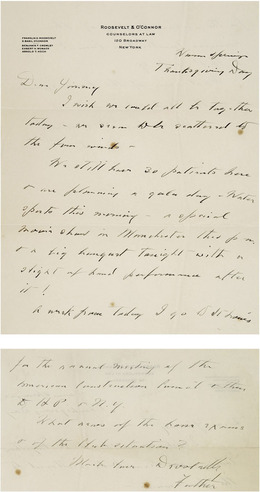 ROOSEVELT & O'CONNOR
COUNSELORS AT LAW
120 BROADWAY
NEW YORK
FRANKLIN D. ROOSEVELT
D. BASIL O'CONNOR
Warm Springs
Thanksgiving Day
Dear
I wish we could all be together
today - we seem to be scattered to
the four winds -
We still have 30 patients here
& are planning a gala day - Water
sports this morning - a special
movie show in Manchester this p.m
& a big banquet tonight with a
slight of hand performance after
it!
A week from today I go to St Louis
for the annual meeting of the
American Construction Council & then
to H.P. & N.Y
What news of the
& of the situation?
Much love Devotedly
Father